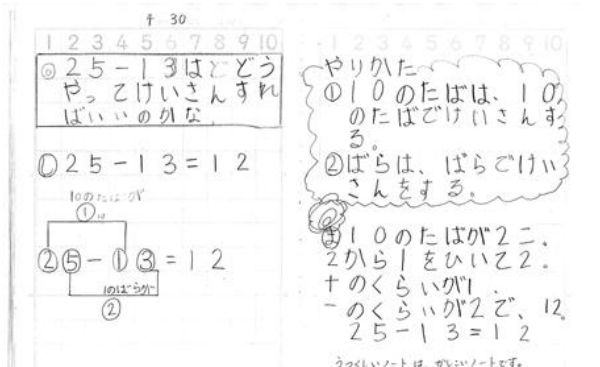 チ 30
1 2 3 4 5 6 7 8 9 10
◎25-13はどどう
やってけいさんすれ
ばいいのかな。
①25-13=12
10のたばが
①
25-13=12
1のばらが
②
やりかた
①10のたばは、10
のたばでけいさんす
る。
②ばらは、ばらでけい
さんをする。
ま10のたばが2こ。
2から1をひいて2。
十のくらいが1、
一のくらいが2で、12。
25-13=12
うつくしいノートは、かしこいノートです。